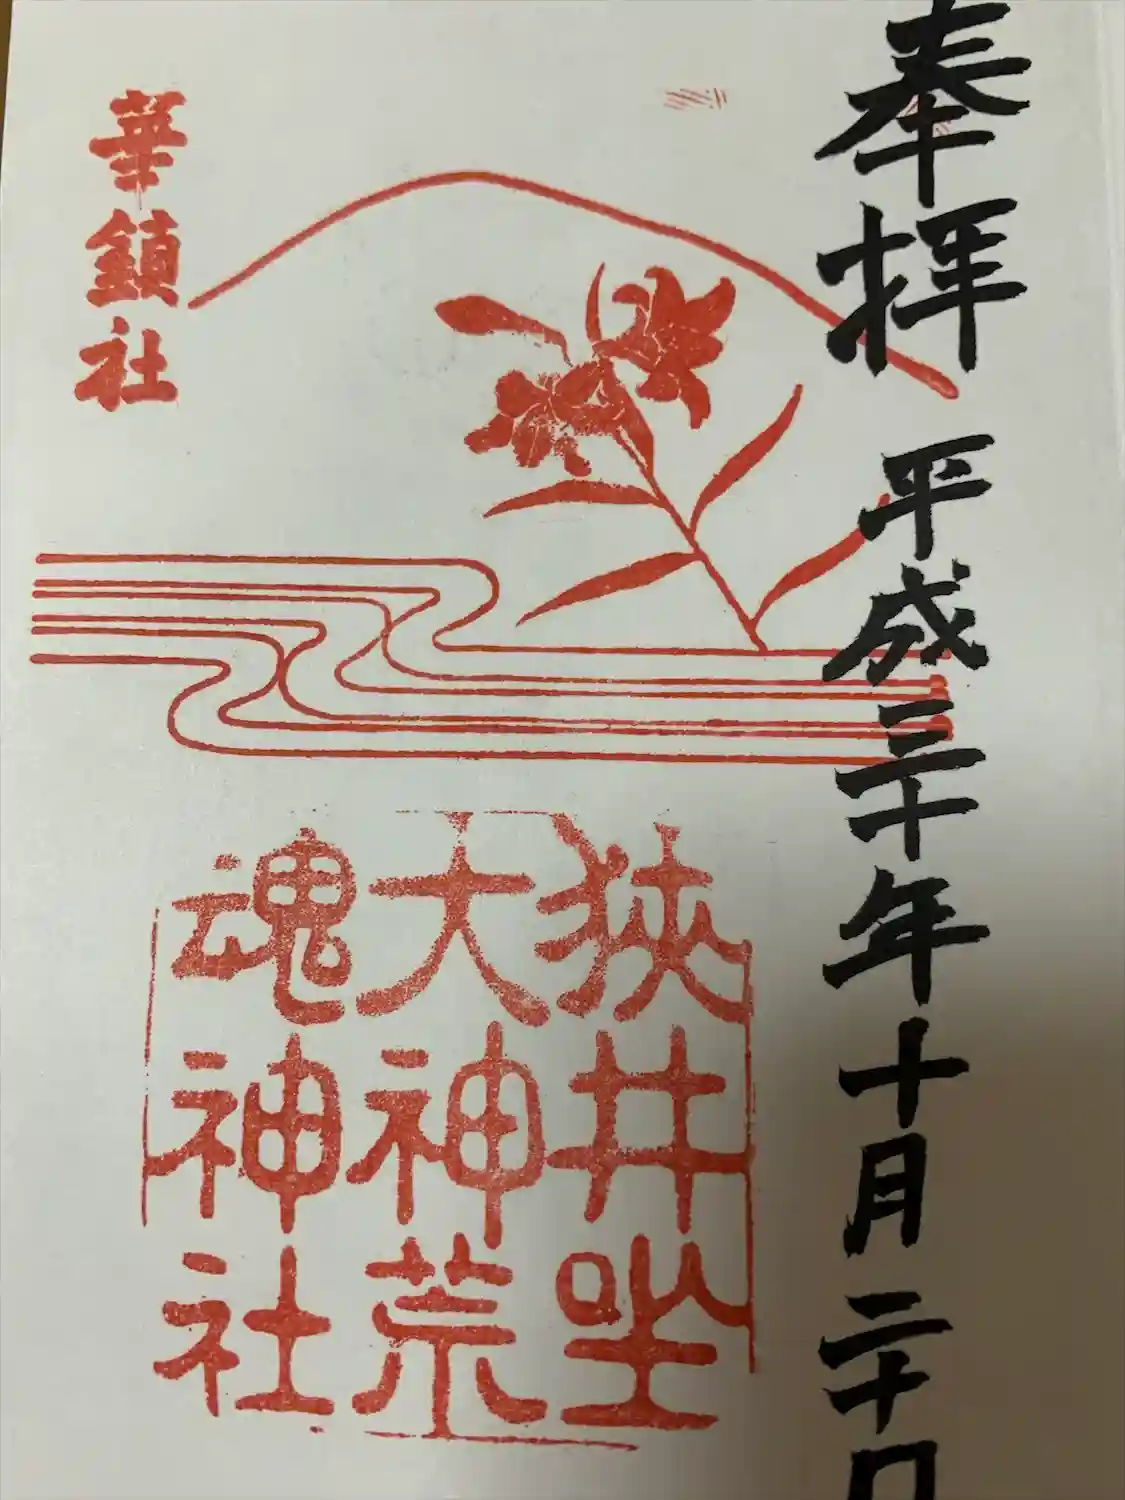 奉拝 平成三十年十月二十日
狭井坐
大神荒
魂神社
華鎮社